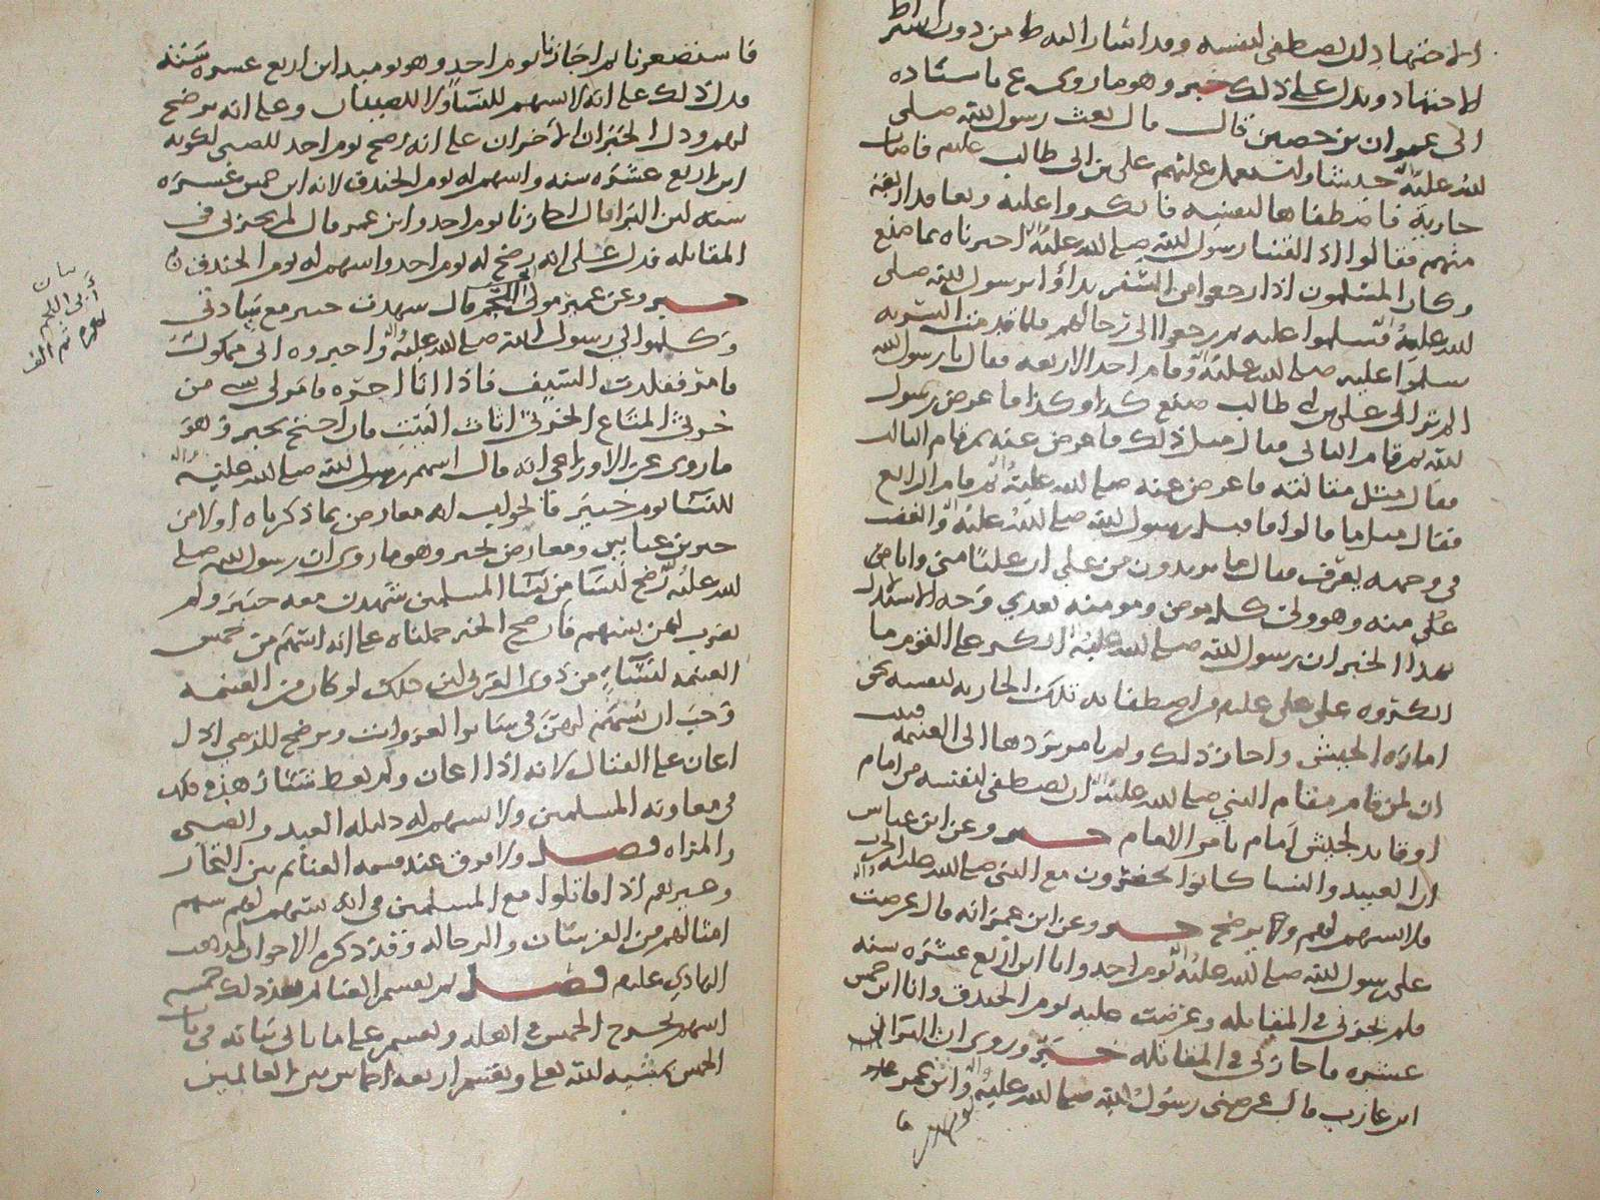 الاجتهاد ان يصطفي لنفسه وقد اشار اليه ط من دون اشتراط
الاجتهاد ويدل على ذلك خبر وهو ما روي ع باسناده
الى عمران بن حصين قال قال بعث رسول الله صلى
الله عليه جيشا واستعمل عليهم علي بن ابي طالب عليلم فاصاب
جارية فاصطفاها لنفسه فانكروا عليه وتعاقد اربعة
منهم فقالوا اذا لقينا رسول الله صلى الله عليه اخبرناه بما صنع
وكان المسلمون اذا رجعوا من السفر بدأوا برسول الله صلى
الله عليه فسلموا عليه ثم رجعوا الى رحالهم فلما قدمت السرية
سلموا عليه صلى الله عليه وقام احد الاربعة فقال يا رسول الله
الم تر الى علي بن ابي طالب صنع كذا وكذا فاعرض رسول
الله ثم قام الثاني فقال مثل ذلك فاعرض عنه ثم قام الثالث
فقال مثل مقالته فاعرض عنه صلى الله عليه ثم قام الرابع
فقال مثل ما قالوا فاقبل رسول الله صلى الله عليه والغضب
في وجهه يعرف فقال ما تريدون من علي ان عليا مني وانا من
علي منه وهو ولي كل مومن ومومنة بعدي وجه الاستدلال
بهذا الخبر ان رسول الله صلى الله عليه انكر على القوم ما
انكروه على علي عليلم من اصطفائه تلك الجارية لنفسه بحق
امارة الجيش واجاز ذلك ولم يامر بردها الى الغنيمة فثبت
ان لمن قام مقام النبي صلى الله عليه ان يصطفي لنفسه من امام
او قائد لجيش امام يامر الامام خبر وعن ابن عباس
ان العبيد والنسا كانوا يحضرون مع النبي صلى الله عليه الحرب
فلا اسهم لهم ولكن يرضخ خبر وعن ابن عمر انه قال عرضت
على رسول الله صلى الله عليه يوم احد وانا ابن اربع عشره سنه
فلم يجزني في المقاتله وعرضت عليه يوم الخندق وانا ابن خمس
عشره فاجازني في المقاتله خبر وروي ان البراء
ابن عازب قال عرضني رسول الله صلى الله عليه وابن عمر
فاستصغرنا ثم اجازنا يوم احد وهو يوميد ابن اربع عشره سنة
فدل ذلك على انه لا سهم للنسا ولا للصبيان وعلى انه يرضخ
لهم ودل الخبران الاخران على انه رضخ يوم احد للصبي لكونه
ابن اربع عشره سنه واسهم له يوم الخندق لانه ابن خمس عشره
سنه لان البرا قال اجازنا يوم احد وابن عمر قال لم يجزني في
المقاتله فدل على انه رضخ له يوم احد واسهم له يوم الخندق
خبر وعن عمير مولى ابي اللحم قال شهدت خيبر مع سادتي
وكلموا في رسول الله صلى الله عليه واخبروه اني مملوك
فامر فقلدت السيف فاذا انا اجره فامر لي بشي من
خرثي المتاع الخرثي اثاث البيت فان احتج بخبر وهو
ما روي عن الاوزاعي انه قال اسهم رسول الله صلى الله عليه
للنسا يوم خيبر فالجواب انه معارض بما ذكرناه اولا من
خبر بن عباس ومعارض لخبر وهو ما روي ان رسول الله صلى
الله عليه رضخ لنسا من نسا المسلمين شهدن معه خيبر ولم
يضرب لهن بسهم فان صح الخبر حملناه على انه اسهم من خمس
الغنيمه لنساء من ذوي القربى لان ذلك لو كان من الغنيمه
وجب ان يسهم لهن في سائر الغزوات ويرضخ للذمي اذا
اعان على القتال لانه اذا اعان ولم يعط شيئا زهد في ذلك
في معاونه المسلمين ولا سهم له دليله العبد والصبي
والمراه فصل ولا فرق عند قسمه الغنائم بين التجار
وغيرهم اذا قاتلوا مع المسلمين في انه يسهم لهم سهم
امثالهم من الفرسان والرجاله وقد ذكره الاخوان لمذهب
الهادي عليلم فصل ثم يقسم الغنائم بعد ذلك خمسه
اسهم يخرج الخمس في اهله ويقسم على ما ياتي بيانه في باب
الخمس بمشيه الله تعالى ويقسم اربعه اخماس بين الغانمين